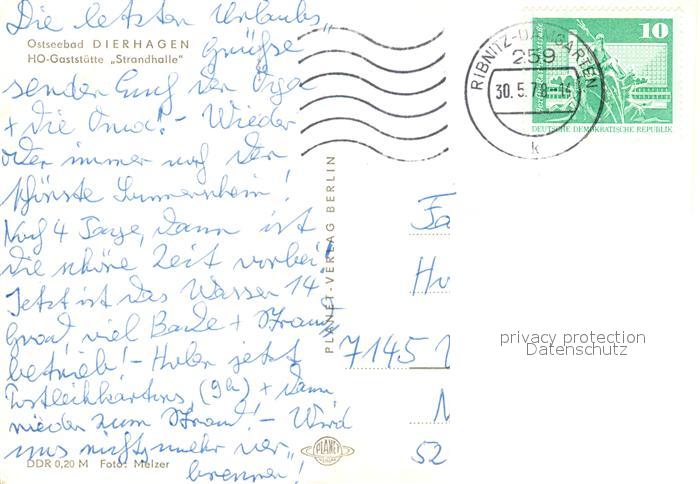 Die letzten Urlaubs„
Ostseebad DIERHAGEN
grüße
HO-Gaststätte „Strandhalle"
sendet Euch der Opa
+ die Oma! - Wieder
oder immer noch der
schönste Sonnenschein!
Noch 4 Tage, dann ist
die schöne Zeit vorbei!
Jetzt ist das Wasser 14
Grad, viel Bade + Strand
betrieb! - Holen jetzt
(9h) + dann
wieder zum Strand! - Wird
uns nichts mehr ver„
brennen!
DDR 0,20 M Foto: Melzer
PLANET-VERLAG BERLIN
PLANET
RIBNITZ-DAMGARTEN
259
30.5.78-14
k
10
DEUTSCHE DEMOKRATISCHE REPUBLIK
Fa
7145
52
privacy protection
Datenschutz